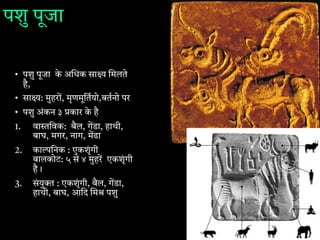 पशु पूजा
• पशु पूजा के अधिक साक्ष्य मिलते
है,
• साक्ष्य: मुहरों, मृणमूर्तियो,बर्तनो पर
• पशु अंकन ३ प्रकार के है
1. वास्तविक: बैल, गेंडा, हाथी,
बाघ, मगर, नाग, मेंडा
2. काल्पनिक : एकशृंगी
बालकोट: ५ से ४ मुहरें एकशृंगी
है ।
3. संयुक्त : एकशृंगी, बैल, गेंडा,
हाथी, बाघ, आदि मिश्र पशु